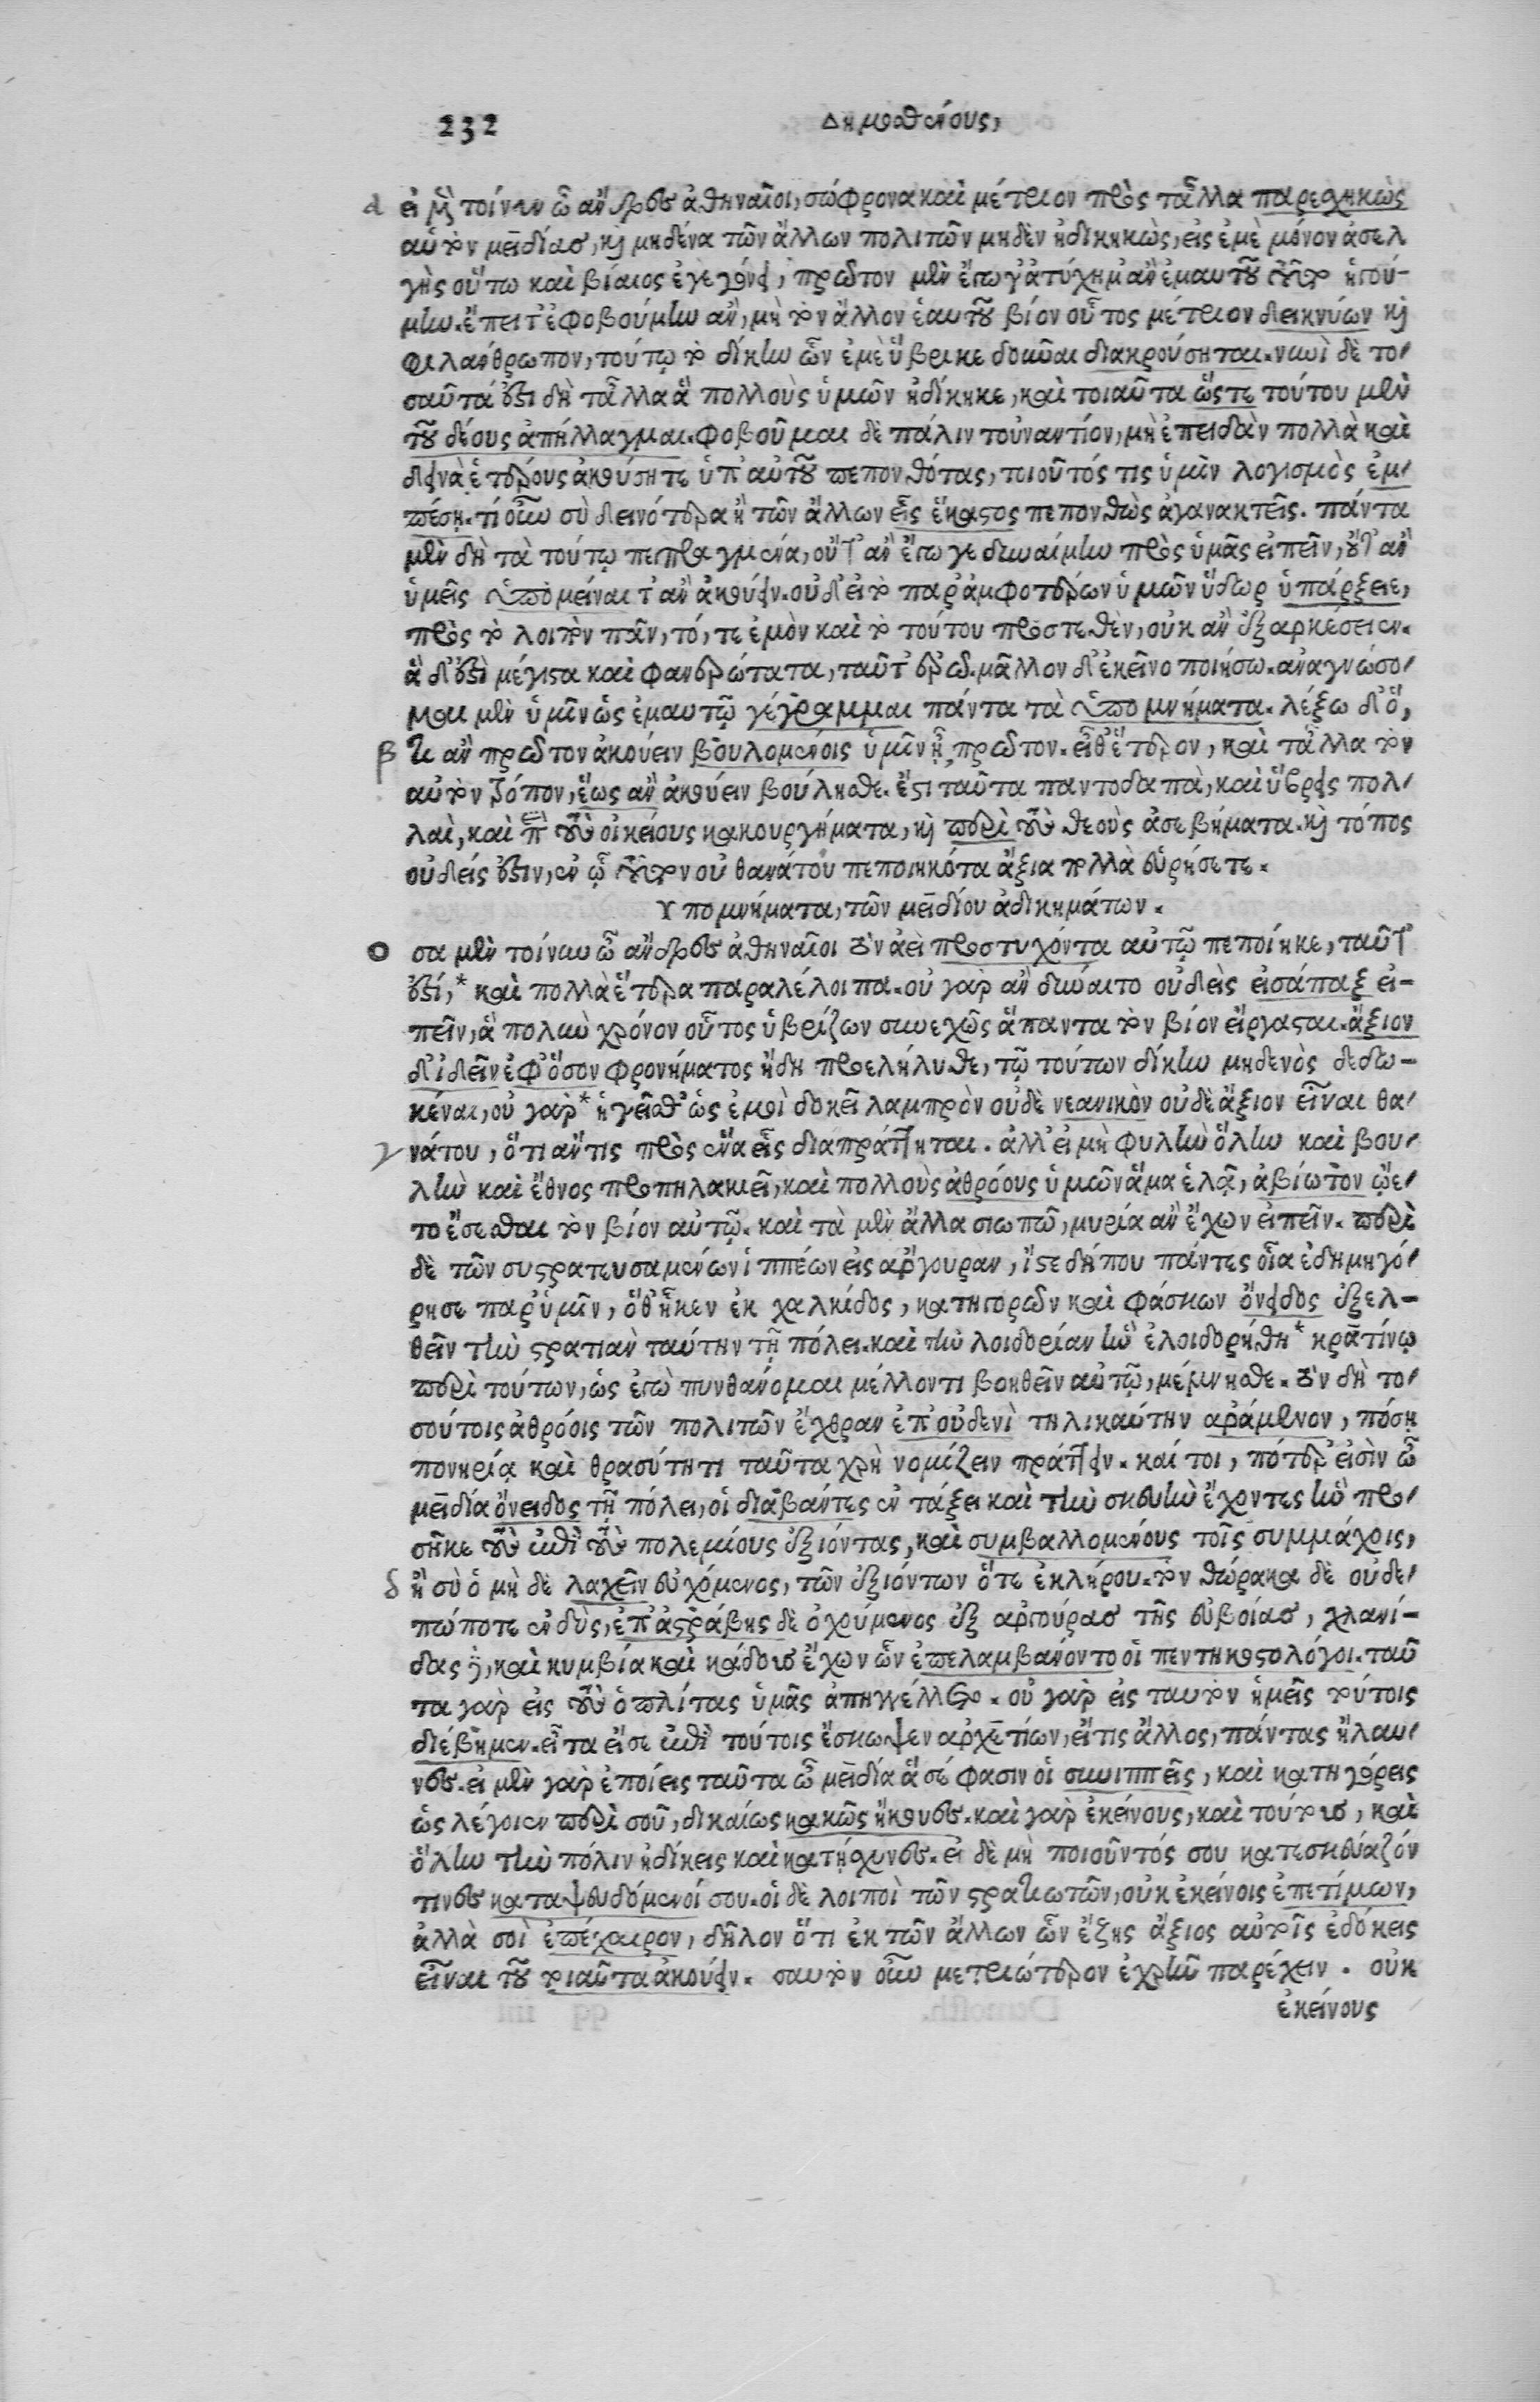 232 Δημοσθένους,
α εἰ μὲν τοίνυν ὦ ἄνδρες ἀθηναῖοι, σώφρονα καὶ μέτριον πρὸς τἆλλα παρεσχηκὼς
αὑτὸν μειδίας, καὶ μηδένα τῶν ἄλλων πολιτῶν μηδὲν ἠδικηκὼς, εἰς ἐμὲ μόνον ἀσελ
γὴς οὕτω καὶ βίαιος ἐγεγόνει, πρῶτον μὲν ἔγωγ' ἀτύχημ' ἂν ἐμαυτοῦ τοῦτο ἡγού-
μην. ἔπειτ' ἐφοβούμην ἂν, μὴ τὸν ἄλλον ἑαυτοῦ βίον οὗτος μέτριον δεικνύων καὶ
φιλάνθρωπον, τούτῳ τὸ δίκην ὧν ἐμὲ ὕβρικε δοῦναι διακρούσηται. νυνὶ δὲ το-
σαῦτά ἐστι δὴ τἆλλα ἃ πολλοὺς ὑμῶν ἠδίκηκε, καὶ τοιαῦτα ὥστε τούτου μὲν
τοῦ δέους ἀπήλλαγμαι. φοβοῦμαι δὲ πάλιν τοὐναντίον, μὴ ἐπειδὰν πολλὰ καὶ
δεινὰ ἑτέρους ἀκούσητε ὑπ' αὐτοῦ πεπονθότας, τοιοῦτός τις ὑμῖν λογισμὸς ἐμ-
πέσῃ. τί οὖν σὺ δεινότερα ἢ τῶν ἄλλων εἷς ἕκαστος πεπονθὼς ἀγανακτεῖς. πάντα
μὲν δὴ τὰ τούτῳ πεπραγμένα, οὔτ' ἂν ἔγωγε δυναίμην πρὸς ὑμᾶς εἰπεῖν, οὔτ' ἂν
ὑμεῖς ὑπομείναιτ' ἂν ἀκούειν. οὐδ' εἰ τὸ παρ' ἀμφοτέρων ὑμῶν ὕδωρ ὑπάρξειε,
πρὸς τὸ λοιπὸν πᾶν, τό, τε ἐμὸν καὶ τὸ τούτου προστεθὲν, οὐκ ἂν ἐξαρκέσειεν.
ἃ δ' ἐστὶ μέγιστα καὶ φανερώτατα, ταῦτ' ἐρῶ. μᾶλλον δ' ἐκεῖνο ποιήσω. ἀναγνώσο-
μαι μὲν ὑμῖν ὡς ἐμαυτῷ γέγραμμαι πάντα τὰ ὑπομνήματα. λέξω δ' ὅ,
β τι ἂν πρῶτον ἀκούειν βουλομένοις ὑμῖν ᾖ, πρῶτον. εἶθ' ἕτερον, καὶ τἆλλα τὸν
αὐτὸν τρόπον, ἕως ἂν ἀκούειν βούλησθε. ἔστι ταῦτα παντοδαπὰ, καὶ ὕβρεις πολ-
λαὶ, καὶ περὶ τοὺς οἰκείους κακουργήματα, καὶ περὶ τοὺς θεοὺς ἀσεβήματα. καὶ τόπος
οὐδείς ἐστιν, ἐν ᾧ τοῦτον οὐ θανάτου πεποιηκότα ἄξια πολλὰ εὑρήσετε.
Υπομνήματα, τῶν μειδίου ἀδικημάτων.
Ο σα μὲν τοίνυν ὦ ἄνδρες ἀθηναῖοι τὸν ἀεὶ προστυχόντα αὐτῷ πεποίηκε, ταῦτ'
ἐστί,* καὶ πολλὰ ἕτερα παραλέλοιπα. οὐ γὰρ ἂν δύναιτο οὐδεὶς εἰσάπαξ εἰ-
πεῖν, ἃ πολὺν χρόνον οὗτος ὑβρίζων συνεχῶς ἅπαντα τὸν βίον εἴργασται. ἄξιον
δ' ἰδεῖν ἐφ' ὅσον φρονήματος ἤδη προελήλυθε, τῷ τούτων δίκην μηδενὸς δεδω-
κέναι, οὐ γὰρ* ἡγεῖθ' ὡς ἐμοὶ δοκεῖ λαμπρὸν οὐδὲ νεανικὸν οὐδὲ ἄξιον εἶναι θα-
γ νάτου, ὅτι ἄν τις πρὸς ἕνα εἷς διαπράττηται. ἀλλ' εἰ μὴ φυλὴν ὅλην καὶ βου-
λὴν καὶ ἔθνος προπηλακιεῖ, καὶ πολλοὺς ἀθρόους ὑμῶν ἅμα ἐλᾷ, ἀβίωτον ᾤε-
το ἔσεσθαι τὸν βίον αὑτῷ. καὶ τὰ μὲν ἄλλα σιωπῶ, μυρία ἂν ἔχων εἰπεῖν. περὶ
δὲ τῶν συστρατευσαμένων ἱππέων εἰς ἀργουραν, ἴστε δήπου πάντες οἷα ἐδημηγό-
ρησε παρ' ὑμῖν, ὅθ' ἧκεν ἐκ χαλκίδος, κατηγορῶν καὶ φάσκων ὄνειδος ἐξελ-
θεῖν τὴν στρατιὰν ταύτην τῇ πόλει. καὶ τὴν λοιδορίαν ἣν ἐλοιδορήθη* κρατίνῳ
περὶ τούτων, ὡς ἐγὼ πυνθάνομαι μέλλοντι βοηθεῖν αὐτῷ, μέμνησθε. τὸν δὴ το-
σούτοις ἀθρόοις τῶν πολιτῶν ἔχθραν ἐπ' οὐδενὶ τηλικαύτην ἀράμενον, πόσῃ
πονηρίᾳ καὶ θρασύτητι ταῦτα χρὴ νομίζειν πράττειν. καίτοι, πότερ' εἰσὶν ὦ
μειδία ὄνειδος τῇ πόλει, οἱ διαβάντες ἐν τάξει καὶ τὴν σκευὴν ἔχοντες ἣν προ-
σῆκε τοὺς ἐπὶ τοὺς πολεμίους ἐξιόντας, καὶ συμβαλλομένους τοῖς συμμάχοις,
δ ἢ σὺ ὁ μὴ δὲ λαχεῖν εὐχόμενος, τῶν ἐξιόντων ὅτε ἐκλήρου. τὸν θώρακα δὲ οὐδε-
πώποτε ἐνδὺς, ἐπ' ἀστράβης δὲ ὀχούμενος ἐξ ἀργούρας τῆς εὐβοίας, χλανί-
δας δὲ, καὶ κυμβία καὶ κάδους ἔχων ὧν ἐπελαμβάνοντο οἱ πεντηκοστολόγοι. ταῦ
τα γὰρ εἰς τοὺς ὁπλίτας ὑμᾶς ἀπηγγέλλετο. οὐ γὰρ εἰς ταυτὸν ἡμεῖς τούτοις
διέβημεν. εἶτα εἴ σε ἐπὶ τούτοις ἔσκωψεν ἀρχετίων, εἴ τις ἄλλος, πάντας ἤλαυ-
νες. εἰ μὲν γὰρ ἐποίεις ταῦτα ὦ μειδία ἅ σέ φασιν οἱ συνιππεῖς, καὶ κατηγόρεις
ὡς λέγοιεν περὶ σοῦ, δικαίως κακῶς ἤκουες. καὶ γὰρ ἐκείνους, καὶ τούτους, καὶ
ὅλην τὴν πόλιν ἠδίκεις καὶ κατῄσχυνες. εἰ δὲ μὴ ποιοῦντός σου κατεσκεύαζόν
τινες καταψευδόμενοί σου. οἱ δὲ λοιποὶ τῶν στρατιωτῶν, οὐκ ἐκείνοις ἐπετίμων,
ἀλλὰ σοὶ ἐπέχαιρον, δῆλον ὅτι ἐκ τῶν ἄλλων ὧν ἔζης ἄξιος αὐτοῖς ἐδόκεις
εἶναι τοῦ τοιαῦτα ἀκούειν. σαυτὸν οὖν μετριώτερον ἐχρῆν παρέχειν. οὐκ
ἐκείνους